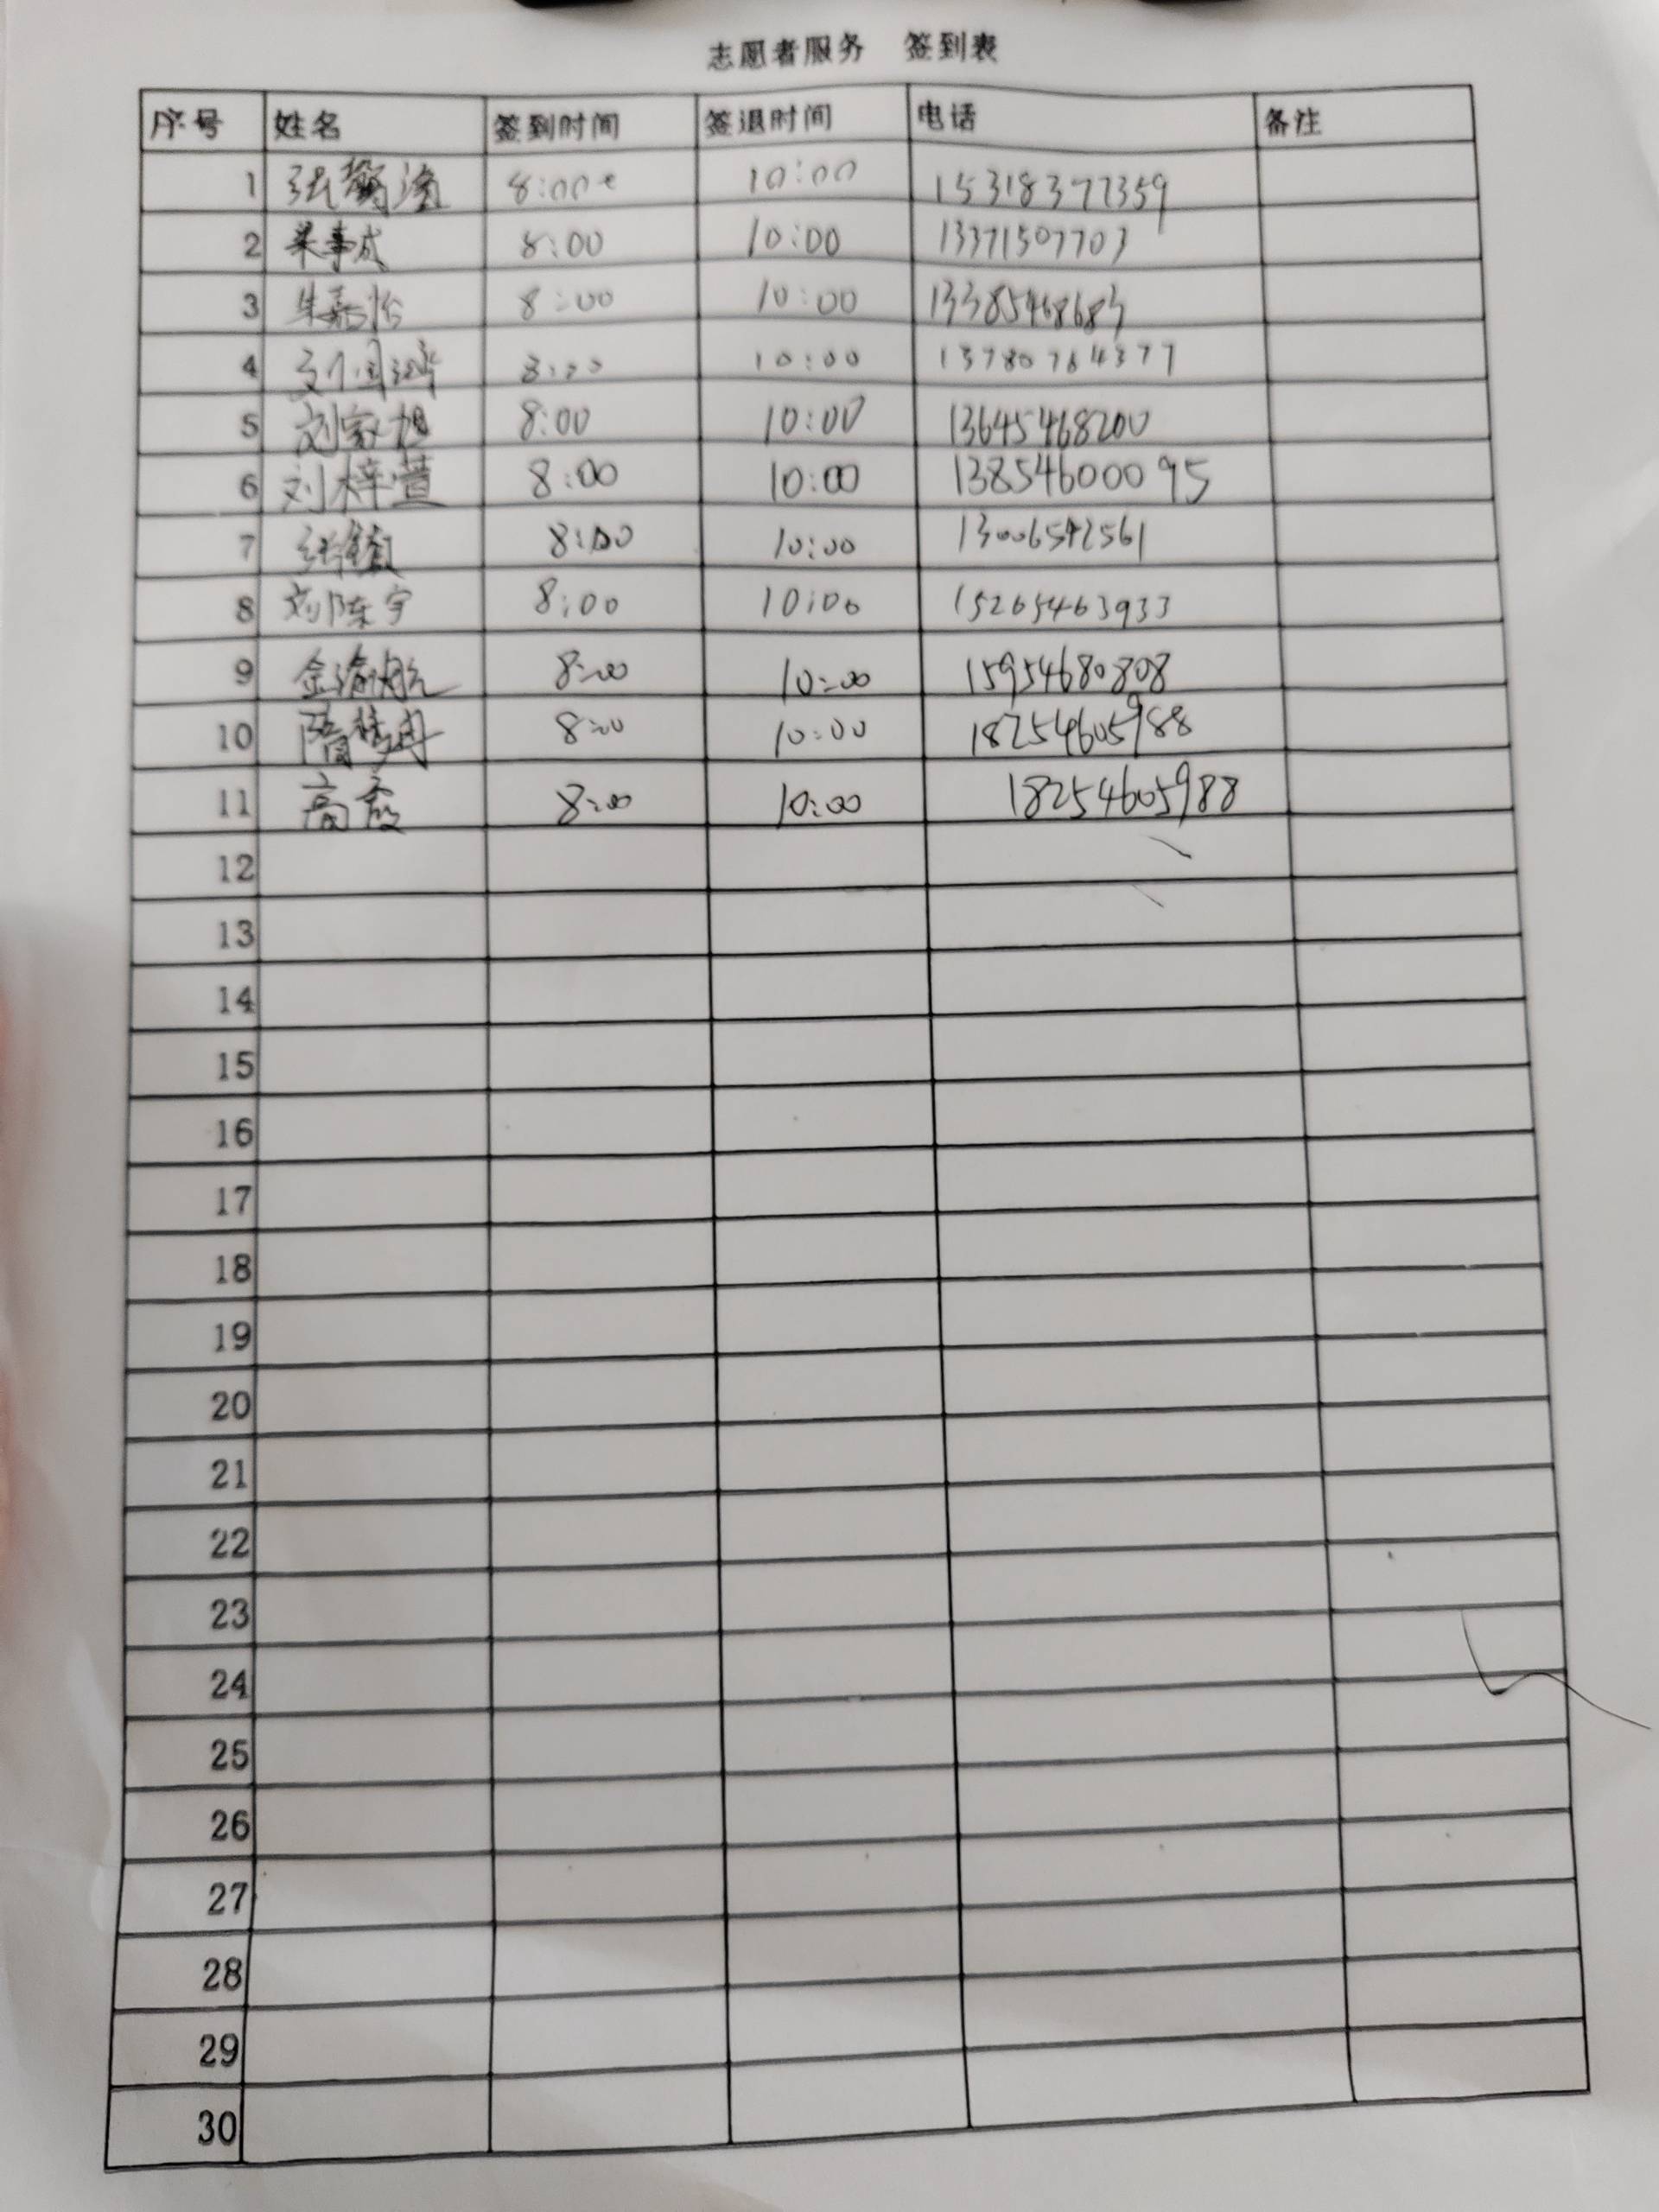 志愿者服务 签到表
序号 姓名 签到时间 签退时间 电话 备注
1 8:00 10:00 15318377359
2 梁事成 8:00 10:00 13371507703
3 朱嘉怡 8:00 10:00 13385468683
4 8:00 10:00 13780764377
5 刘家旭 8:00 10:00 13645468200
6 刘梓萱 8:00 10:00 13854600095
7 8:00 10:00 13006542561
8 刘陈宇 8:00 10:00 15265463933
9 金瑜航 8:00 10:00 15954680808
10 隋梦丹 8:00 10:00 18254605988
11 高霞 8:00 10:00 18254605988
12
13
14
15
16
17
18
19
20
21
22
23
24
25
26
27
28
29
30